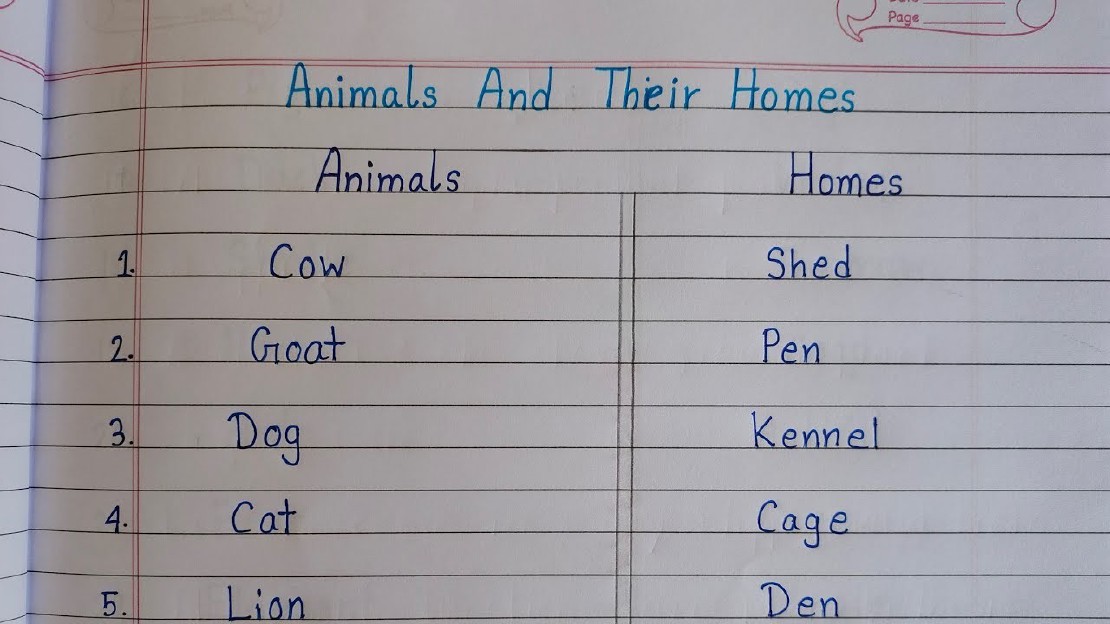 Page
Animals And Their Homes
Animals Homes
1. Cow Shed
2. Goat Pen
3. Dog Kennel
4. Cat Cage
5. Lion Den